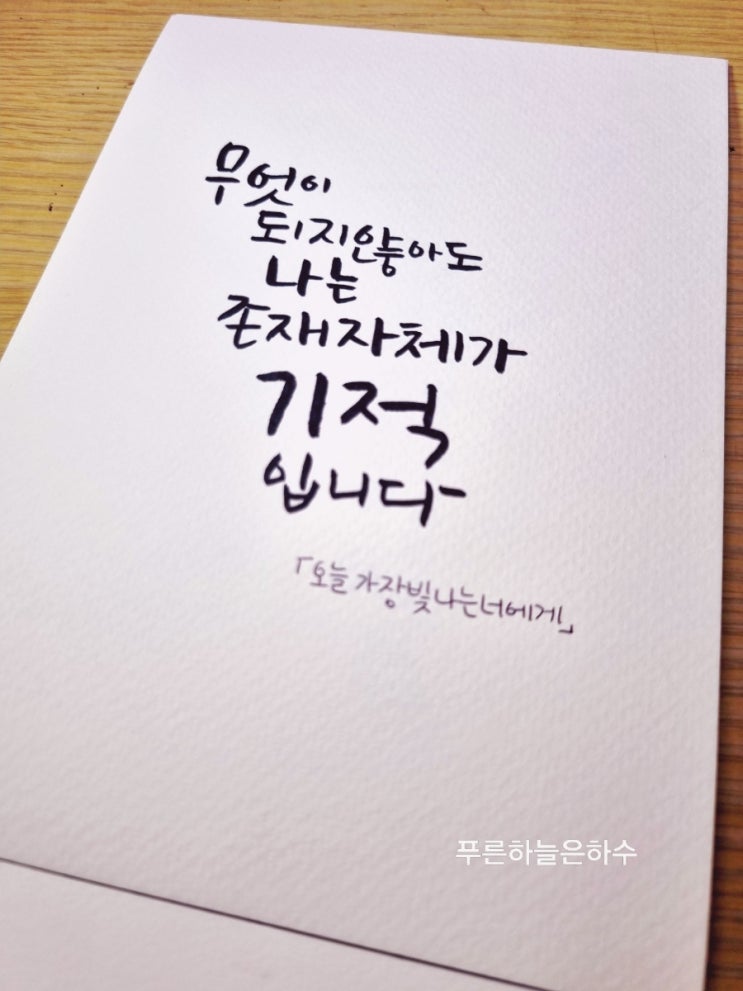 무엇이
되지않아도
나는
존재자체가
기적
입니다
「오늘 가장 빛나는 너에게」
푸른하늘은하수